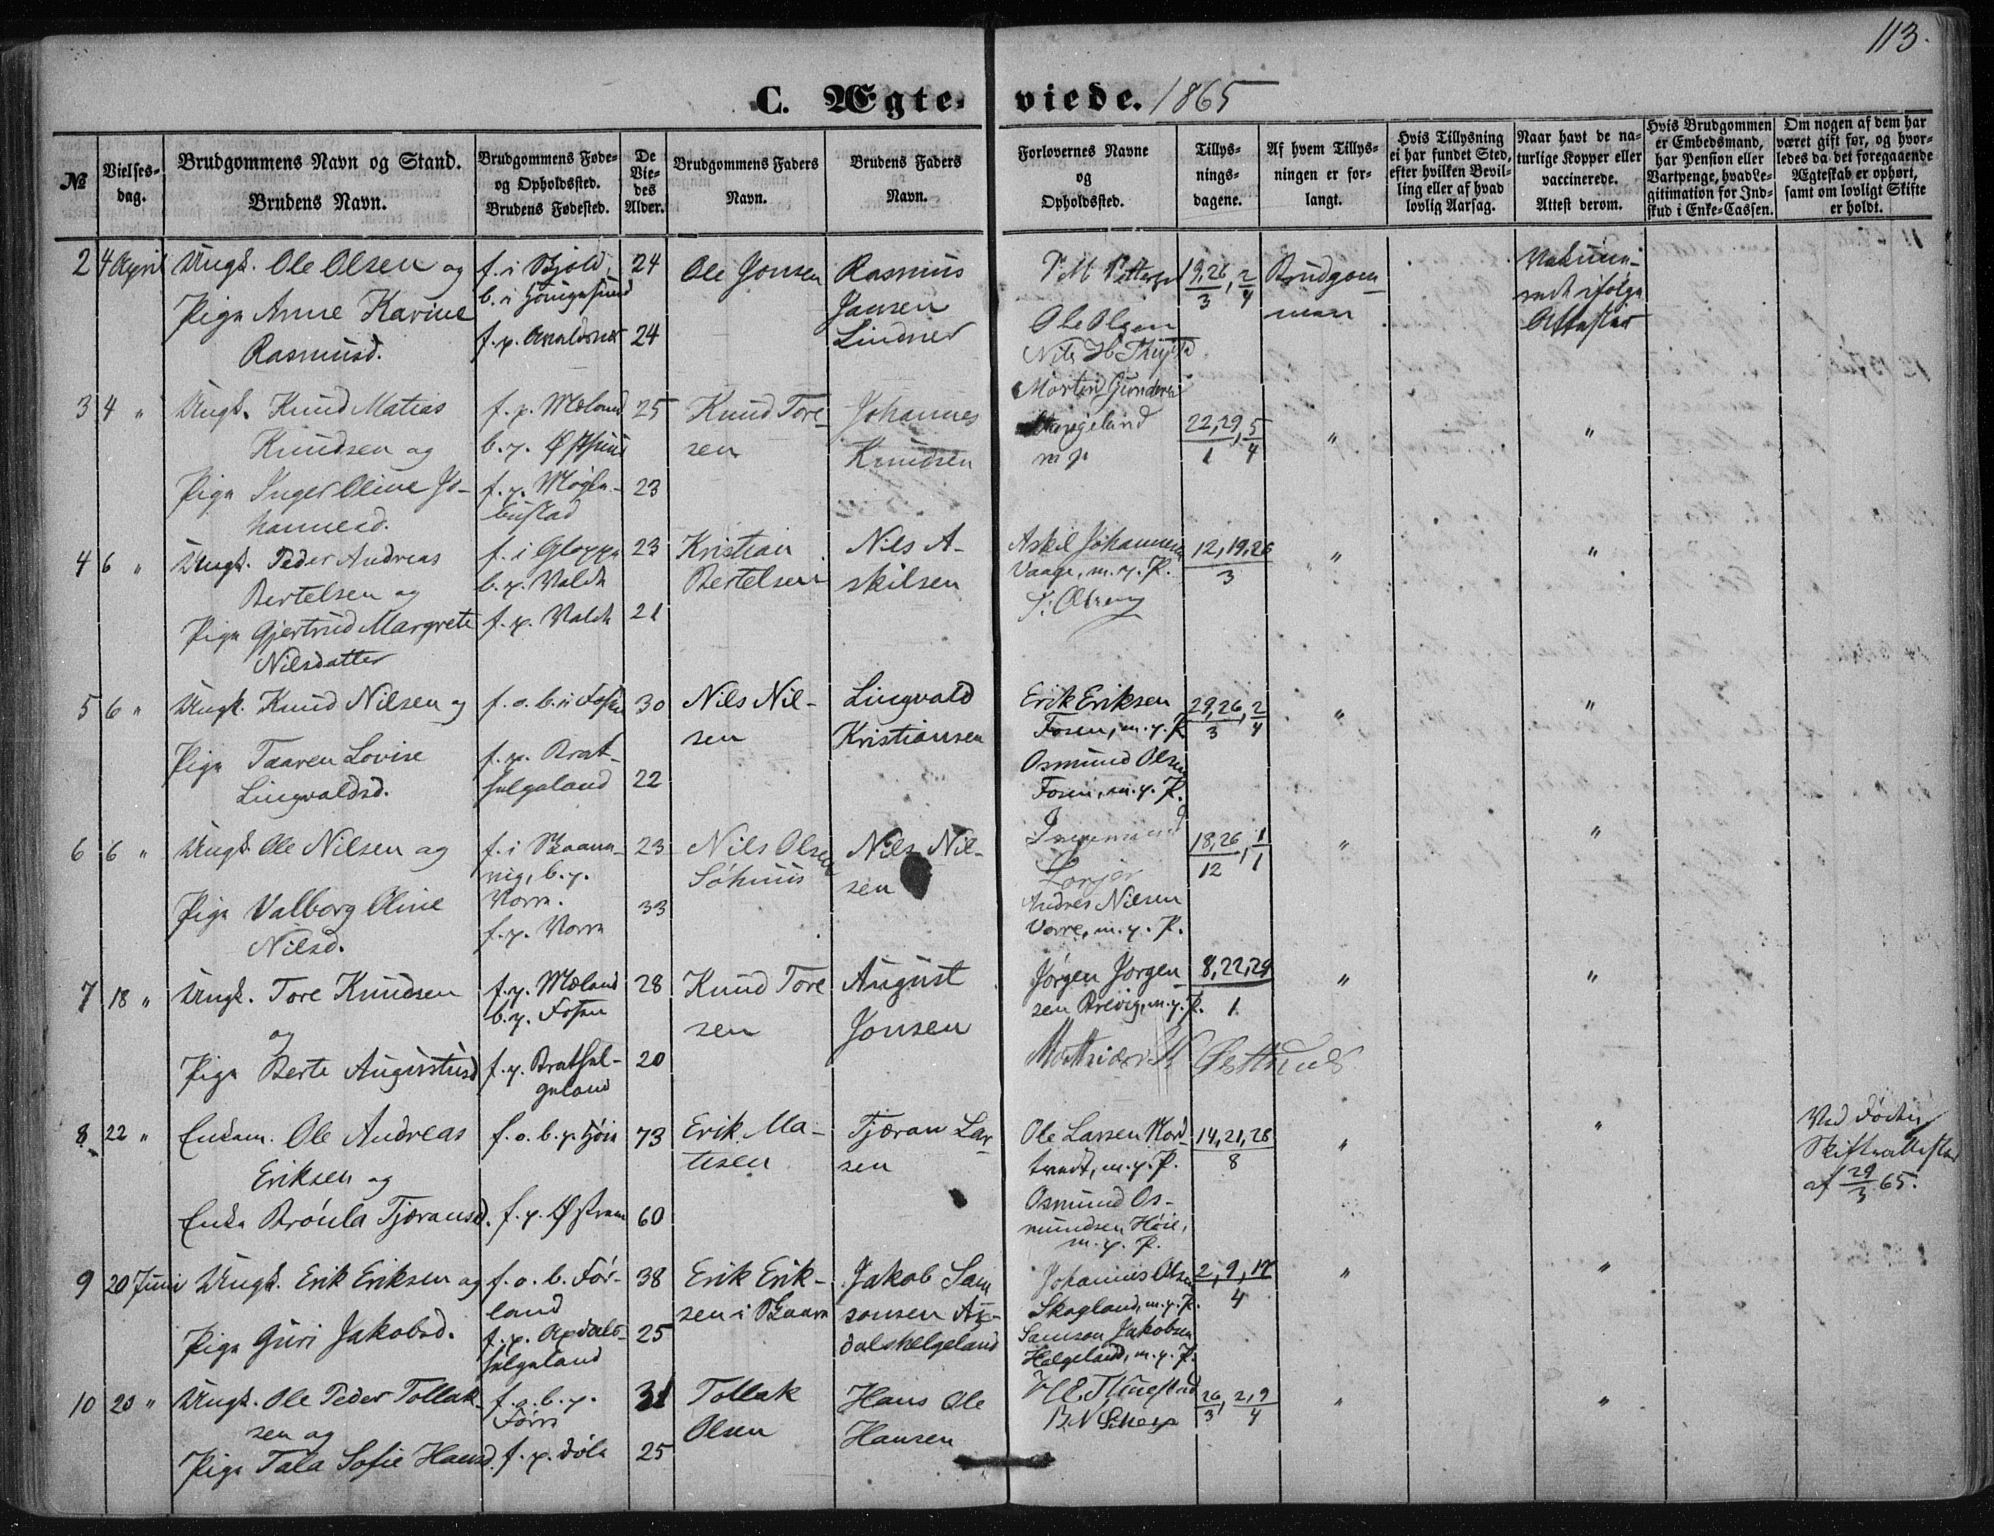 113.
C. Ægte- viede. 1865
№
Vielses-
dag.
Brudgommens Navn og Stand.
Brudens Navn.
Brudgommens Føde-
og Opholdssted.
Brudens Fødested.
De
Vie-
des
Alder.
Brudgommens Faders
Navn.
Brudens Faders
Navn.
Forlovernes Navne
og
Opholdssted.
Tillys-
nings-
dagene.
Af hvem Tillys-
ningen er for-
langt.
Hvis Tillysning
ei har fundet Sted,
efter hvilken Bevil-
ling eller af hvad
lovlig Aarsag.
Naar havt de na-
turlige Kopper eller
vaccinerede.
Attest derom.
Hvis Brudgommen
er Embedsmand,
har Pension eller
Vartpenge, hvad Le-
gitimation for Ind-
skud i Enke-Cassen.
Om nogen af dem har
været gift før, og hvor-
ledes da det foregaaende
Ægteskab er ophørt,
samt om lovligt Skifte
er holdt.
2 4 April Ungk. Ole Olsen og
Pige Anne Karine
Rasmusd.
f. i Skjold,
b. i
f. p.
24
24
Ole Jonsen
Rasmus
Jansen
Lindner
Ole Olsen
19, 26, 2
3 4
Brudgom-
men
ifølge
Attester
3 4 " Ungk. Knud Matias
Knudsen og
Pige Inger Oline Jo-
hannesd.
f. p. Mæland
b. p.
f. p. Møgle-
bustad
25
23
Knud Tore-
sen
Johannes
Knudsen
Morten
m p.
22, 29, 5
1 4
"
"
4 6 " Ungk. Peder Andreas
Bertelsen og
Pige Gjertrud Margrete
Nilsdatter
f. i Gloppe
b. p. Valde
f. p. Valde
23
21
Kristian
Bertelsen
Nils A-
skilsen
Askel Johannesen
Vaage, m. p. P.
12, 19, 26
3
"
"
5 6 " Ungk. Knud Nilsen og
Pige Taaren Lovise
Lingvaldsd.
f. o. b. i Fosen
f. p. Brat-
helgeland
30
22
Nils Nil-
sen
Lingvald
Kristiansen
Erik Eriksen
Fosen, m. p. P.
Osmund Olsen
Fosen, m. p. P.
29, 26, 2
3 4
"
"
6 6 " Ungk. Ole Nilsen og
Pige Valborg Oline
Nilsd.
f. i Skaane-
vig, b. p.
Vorre.
f. p. Vorre
23
33
Nils Olsen
Nils Nil-
sen
Andres Nilsen
Vorre, m. p. P.
18, 26, 1
12 1
"
"
7 18 " Ungk. Tore Knudsen
og
Pige Berte Augustusd
f. p. Mæland
b. p. Fosen
f. p. Brathel-
geland
28
20
Knud Tore
sen
August
Jonsen
Jørgen Jørgen
sen Brevig, m. p. P.
8, 22, 29
1
"
"
8. 22 " Enkem. Ole Andreas
Eriksen og
Enke Brónla Tjæransd.
f. o. b. p. Høie
f. p.
73
60
Erik Ma-
tisen
Tjæran Lar
sen
Ole Larsen Nord
m. p. P.
Osmund Os-
mundsen Høie,
m. p. P.
14, 21, 28
8
"
"
Ved
Skifteattester
af 29/3 65.
9 20 Juni Ungk. Erik Eriksen og
Pige Guri Jakobsd.
f. o. b. Før-
land
f. p. Apdals-
helgeland
38
25
Erik Erik-
sen i Skaare
Jakob Sam
sonsen Ap-
dalshelgeland
Johannes Olsen
Skogland, m. p. P.
Samson Jakobsen
Helgeland, m. p. P.
2, 9, 17
4
"
"
10 20 " Ungk. Ole Peder Tollak-
sen og
Pige Tala Sofie Hansd.
f. o. b. p.
f. p. Døle
31
25
Tollak
Olsen
Hans Ole
Hansen
26, 2, 9
3 4
"
"